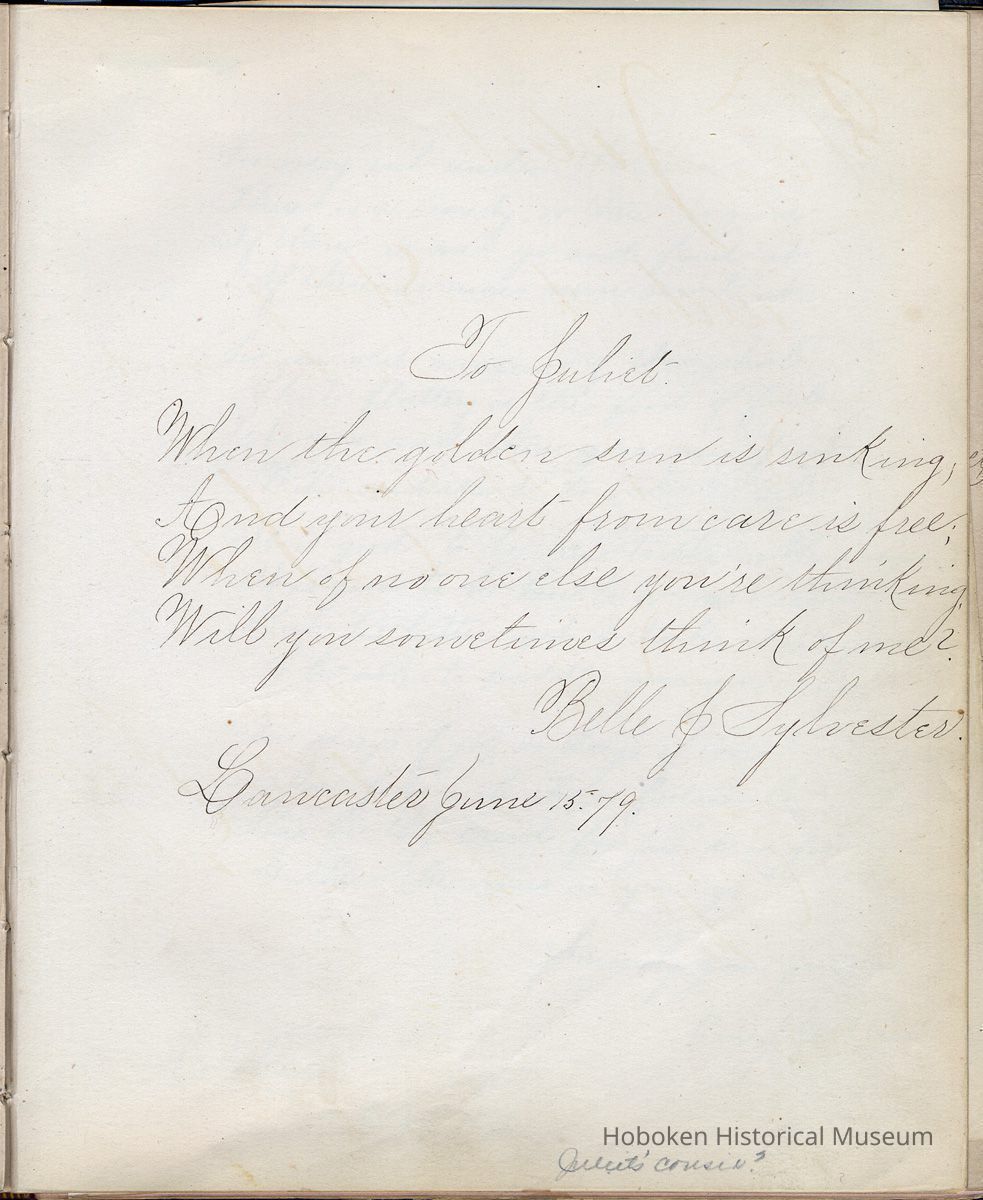 To Juliet.
When the golden sun is sinking,
And your heart from care is free;
When of no one else you're thinking,
Will you sometimes think of me?
Belle J Sylvester.
Lancaster June 15. 79.
Hoboken Historical Museum
Juliet's cousin?